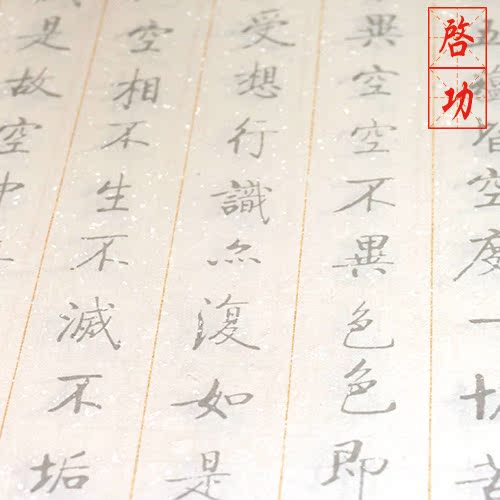 啓功
五蘊皆空度一切苦
異空空不異色色即
受想行識亦復如是
空相不生不滅不垢
是故空中